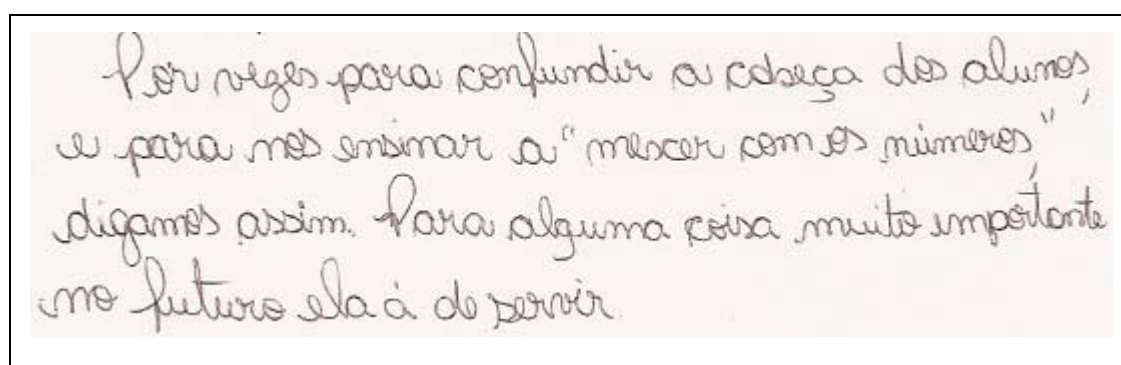 Por vezes para confundir a cabeça dos alunos,
e para nos ensinar a "mexcer com os números",
digamos assim. Para alguma coisa muito importante
no futuro ela á de servir.